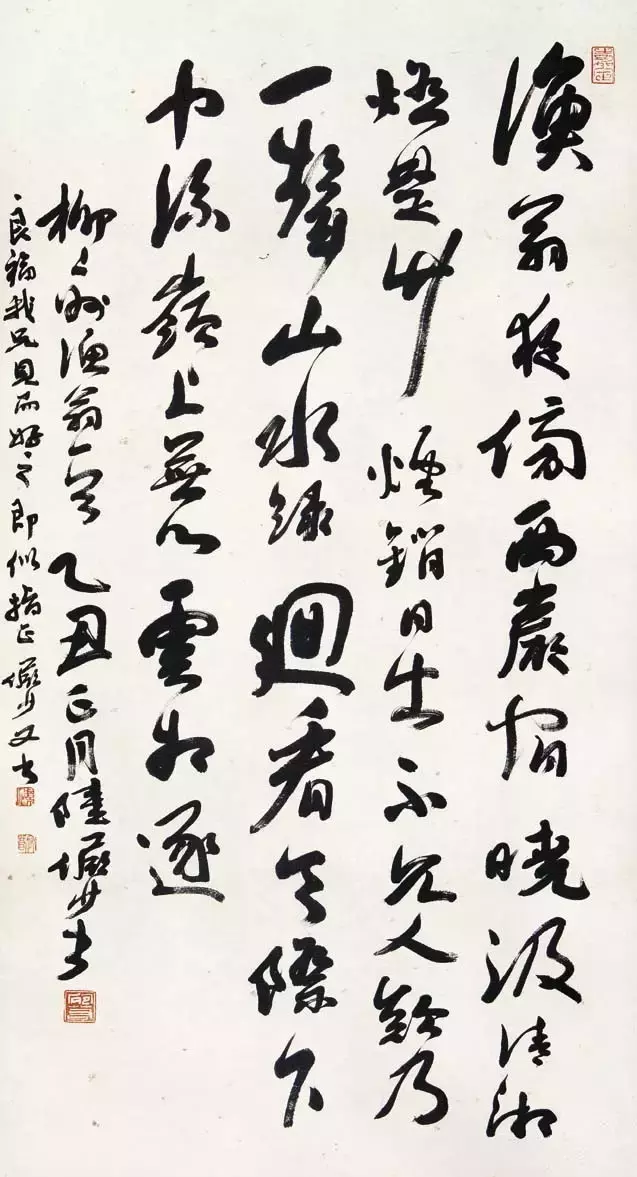 漁翁夜傍西巖宿曉汲清湘
燃楚竹煙銷日出不見人欸乃
一聲山水綠迴看天際下
中流巖上無心雲相逐
柳柳州漁翁一首乙丑正月陸儼少書
良福我兄見而好之即似指正儼少又書